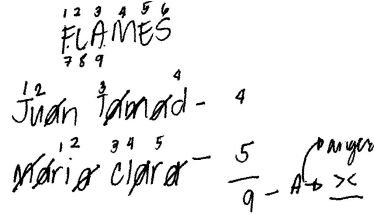 1 2 3 4 5 6
FLAMES
7 8 9
1 2 3 4
Juan Tamad - 4
1 2 3 4 5
Maria Clara - 5
9 - A → anger
><